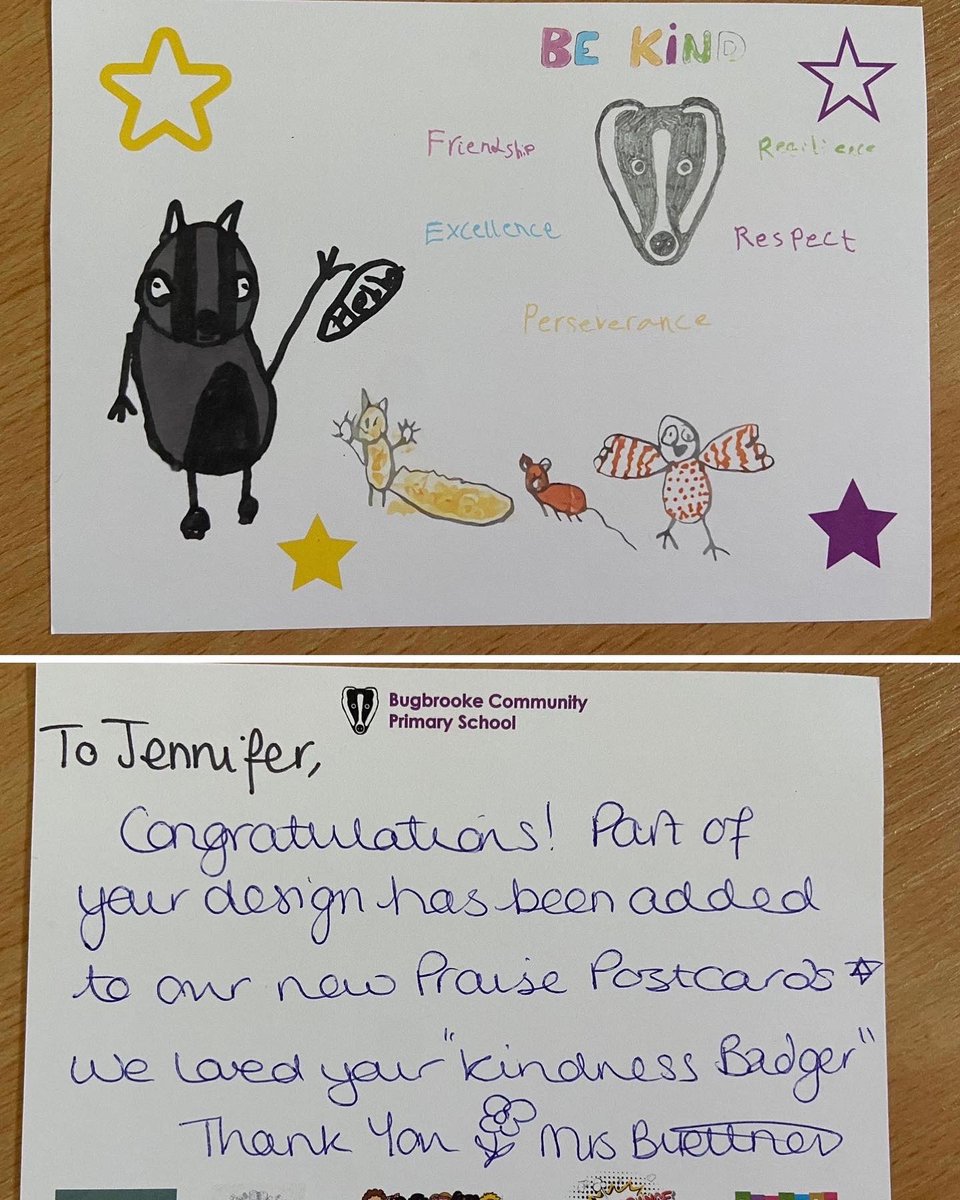 BE KIND
Friendship
Resilience
Excellence
Respect
Hello
Perseverance
Bugbrooke Community
Primary School
To Jennifer,
Congratulations! Part of
your design has been added
to our new Praise Postcards
We loved your "kindness Badger"
Thank You Mrs Buettner